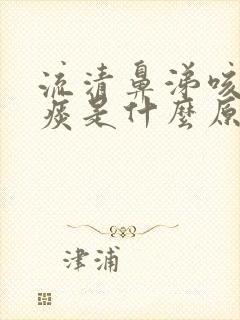 流清鼻涕咳
痰是什麼原
津浦